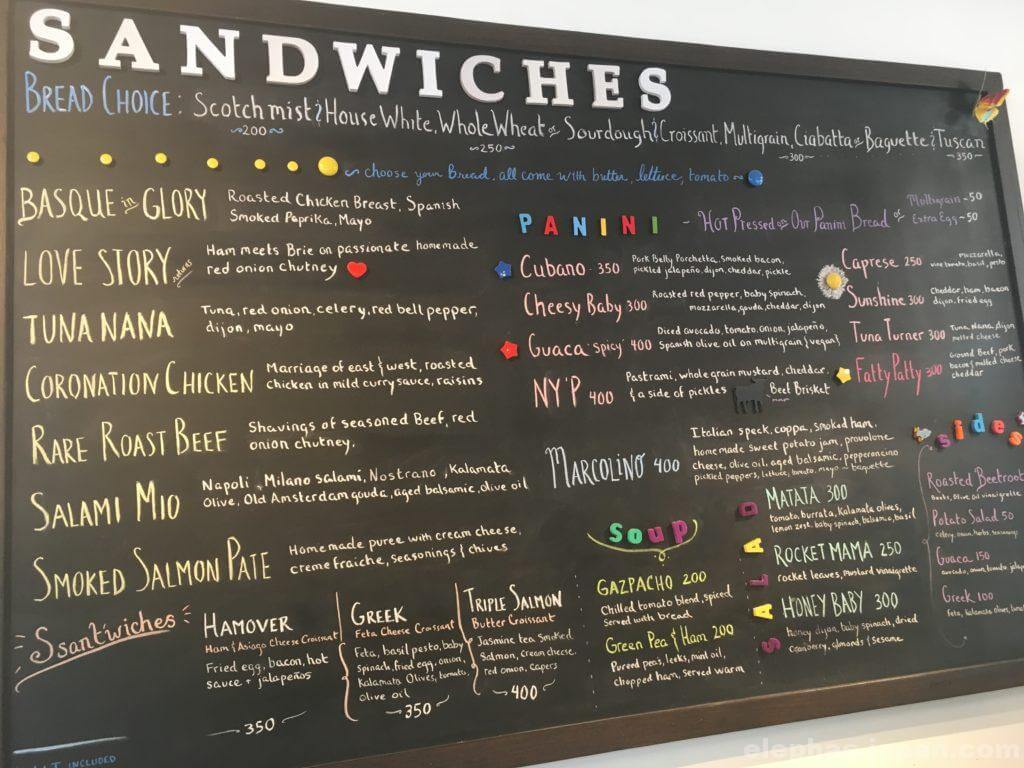 SANDWICHES
BREAD CHOICE: Scotch mist & House White, Whole Wheat or Sourdough & Croissant, Multigrain, Ciabatta or Baguette & Tuscan
~200~
~250~
~300~
~350~
~ choose your Bread, all come with butter, lettuce, tomato ~
BASQUE in GLORY
Roasted Chicken Breast, Spanish
Smoked Paprika, Mayo
LOVE STORY
Ham meets Brie on passionate homemade
red onion chutney
TUNA NANA
Tuna, red onion, celery, red bell pepper,
dijon, mayo
CORONATION CHICKEN
Marriage of east & west, roasted
chicken in mild curry sauce, raisins
RARE ROAST BEEF
Shavings of seasoned Beef, red
onion chutney.
SALAMI MIO
Napoli, Milano salami, Nostrano, Kalamata
Olive, Old Amsterdam gouda, aged balsamic, olive oil
SMOKED SALMON PATE
Homemade puree with cream cheese,
creme fraiche, seasonings & chives
PANINI - HOT Pressed on Our Panini Bread or
Multigrain ~50
Extra Egg ~50
Cubano 350
Pork Belly Porchetta, smoked bacon,
pickled jalapeño, dijon, cheddar, pickle
Cheesy Baby 300
Roasted red pepper, baby spinach,
mozzarella, gouda, cheddar, dijon
Guaca 'spicy' 400
Diced avocado, tomato, onion, jalapeño,
Spanish olive oil on multigrain & vegan
NY'P 400
Pastrami, whole grain mustard, cheddar,
& a side of pickles
Beef Brisket
Caprese 250
mozzarella,
vine tomato, basil, pesto
Sunshine 300
Cheddar, ham, bacon
dijon, fried egg
Tuna Turner 300
Tuna Nana, dijon
melted cheese
Fatty Patty 300
Ground Beef, pork
bacon & melted cheese
cheddar
MARCOLINO 400
Italian speck, coppa, smoked ham,
homemade sweet potato jam, provolone
cheese, olive oil, aged balsamic, pepperoncino
pickled peppers, lettuce, tomato, mayo - baguette
soup
GAZPACHO 200
Chilled tomato blend, spiced
Served with bread
Green Pea & Ham 200
Pureed peas, leeks, mint oil,
chopped ham, served warm
SALAD
MATATA 300
tomato, burrata, Kalamata olives,
lemon zest, baby spinach, balsamic, basil
ROCKET MAMA 250
rocket leaves, mustard vinaigrette
HONEY BABY 300
honey dijon, baby spinach, dried
cranberry, almonds & sesame
sides
Roasted Beetroot
Beets, Olive oil vinaigrette
Potato Salad 50
celery, onion, herbs,
Guaca 150
avocado, onion, tomato,
Greek 100
Feta, Kalamata olives,
Ssantwiches
HAMOVER
Ham & Asiago Cheese Croissant
Fried egg, bacon, hot
sauce + jalapeños
350
GREEK
Feta Cheese Croissant
Feta, basil pesto, baby
spinach, fried egg, onion,
Kalamata Olives, tomato,
olive oil
350
TRIPLE SALMON
Butter Croissant
Jasmine tea Smoked
Salmon, cream cheese,
red onion, capers
400
INCLUDED